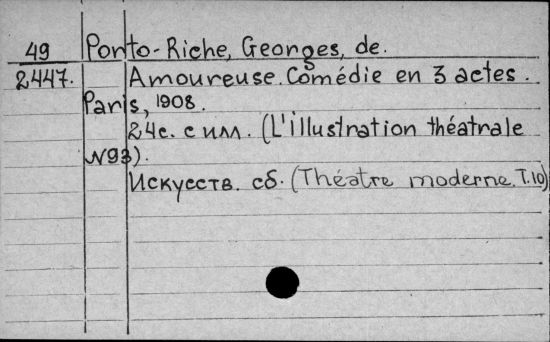 49 Ponto-Riche, Georges, de.
2447. Amoureuse. Comédie en 3 actes.
Paris, 1908.
24с. с илл. (L'illustration théatrale
N93).
Искусств. сб. (Théatre moderne. T.10)